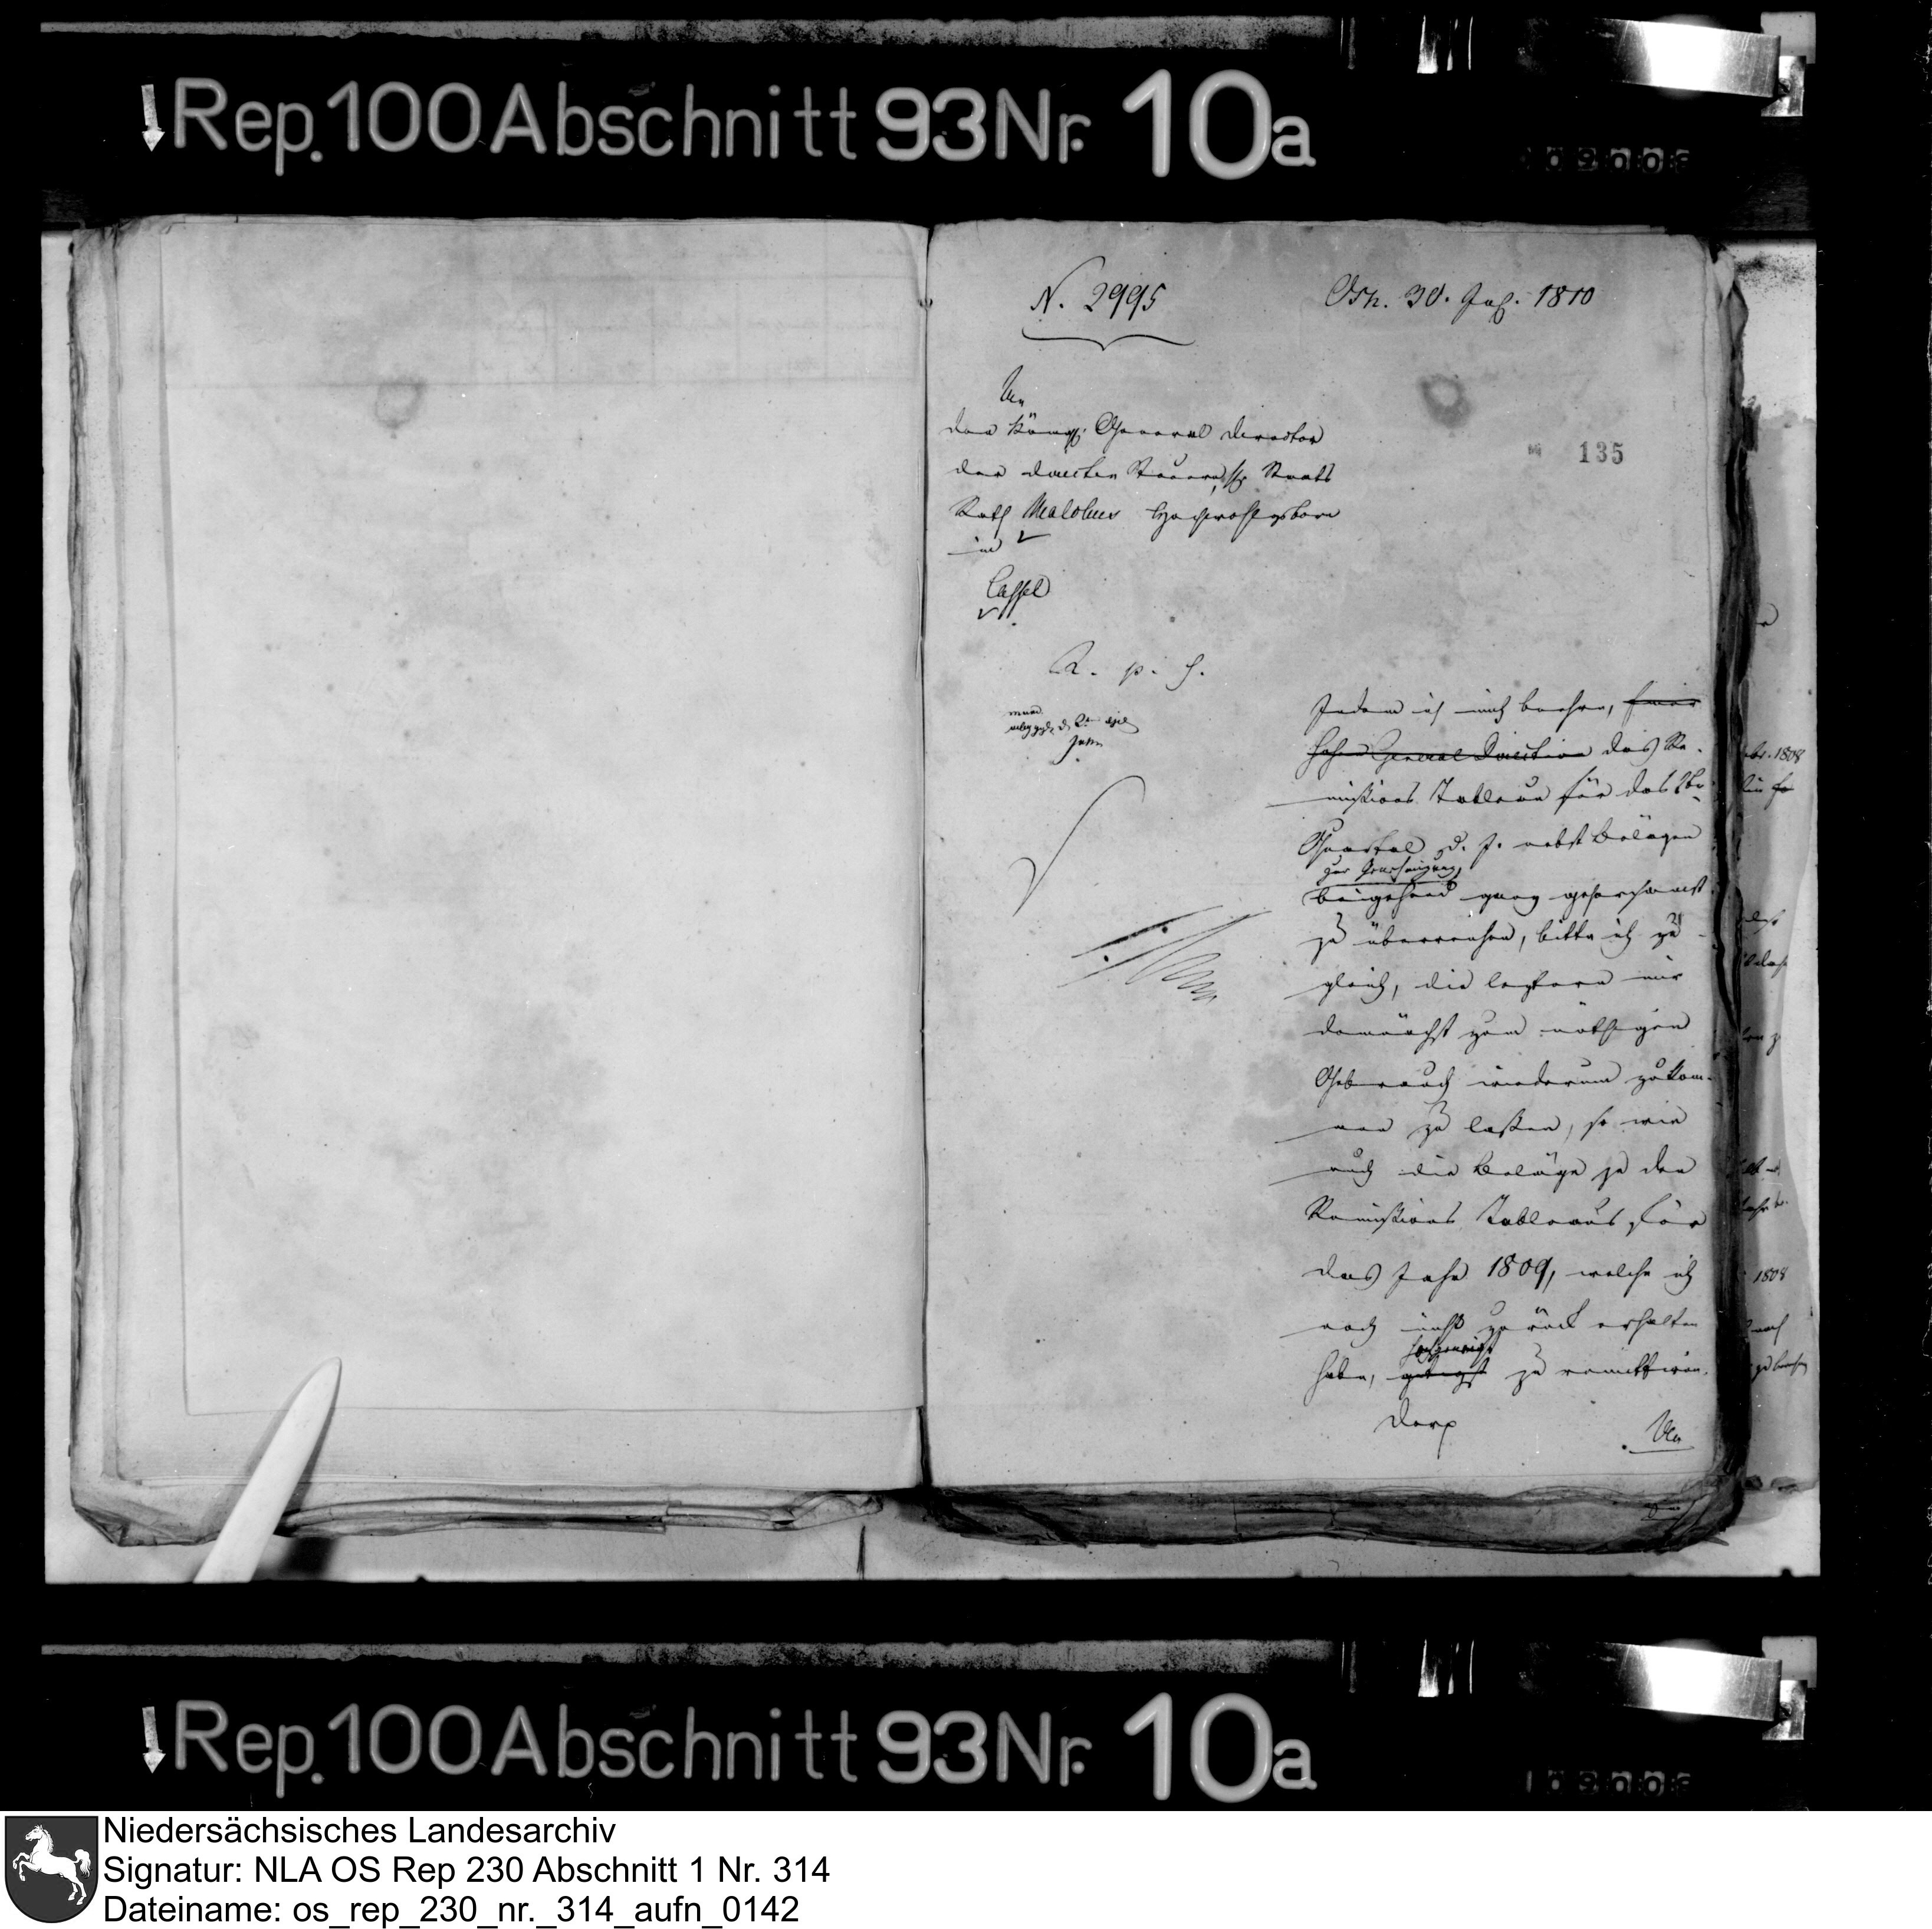 Rep. 100 Abschnitt 93 Nr. 10a
N. 2995
Osn. 30. 1810
135
An
den Königl. General Director
der directen Steuern, Staats
Rath Malchus Hochwohlgeboren
in
Cassel
R. p. s.
Indem ich mich beehre, einer
hohen General Direction das Re-
missions Tableau für das
Quartal d. J. nebst Belägen
zur Genehmigung
beigehend ganz gehorsamst
zu überreichen, bitte ich zu-
gleich, die letztere mir
demnächst zum nöthigen
Gebrauch wiederum zukom-
men zu laßen, so wie
auch die Beläge zu den
Remissions Tableaus für
das Jahr 1809, welche ich
noch nicht zurück erhalten
habe, zu remittiren.
An
1808
1808
Rep. 100 Abschnitt 93 Nr. 10a
Niedersächsisches Landesarchiv
Signatur: NLA OS Rep 230 Abschnitt 1 Nr. 314
Dateiname: os_rep_230_nr._314_aufn_0142